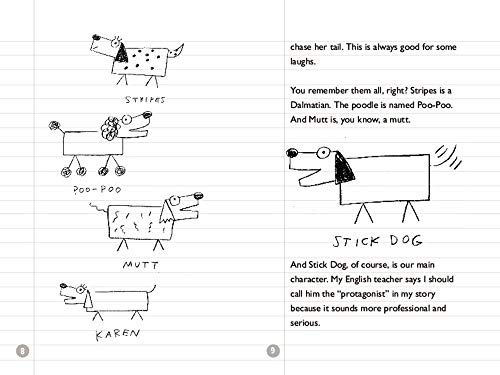 STRIPES
POO-POO
MUTT
KAREN
8
chase her tail. This is always good for some
laughs.
You remember them all, right? Stripes is a
Dalmatian. The poodle is named Poo-Poo.
And Mutt is, you know, a mutt.
STICK DOG
And Stick Dog, of course, is our main
character. My English teacher says I should
call him the “protagonist” in my story
because it sounds more professional and
serious.
9